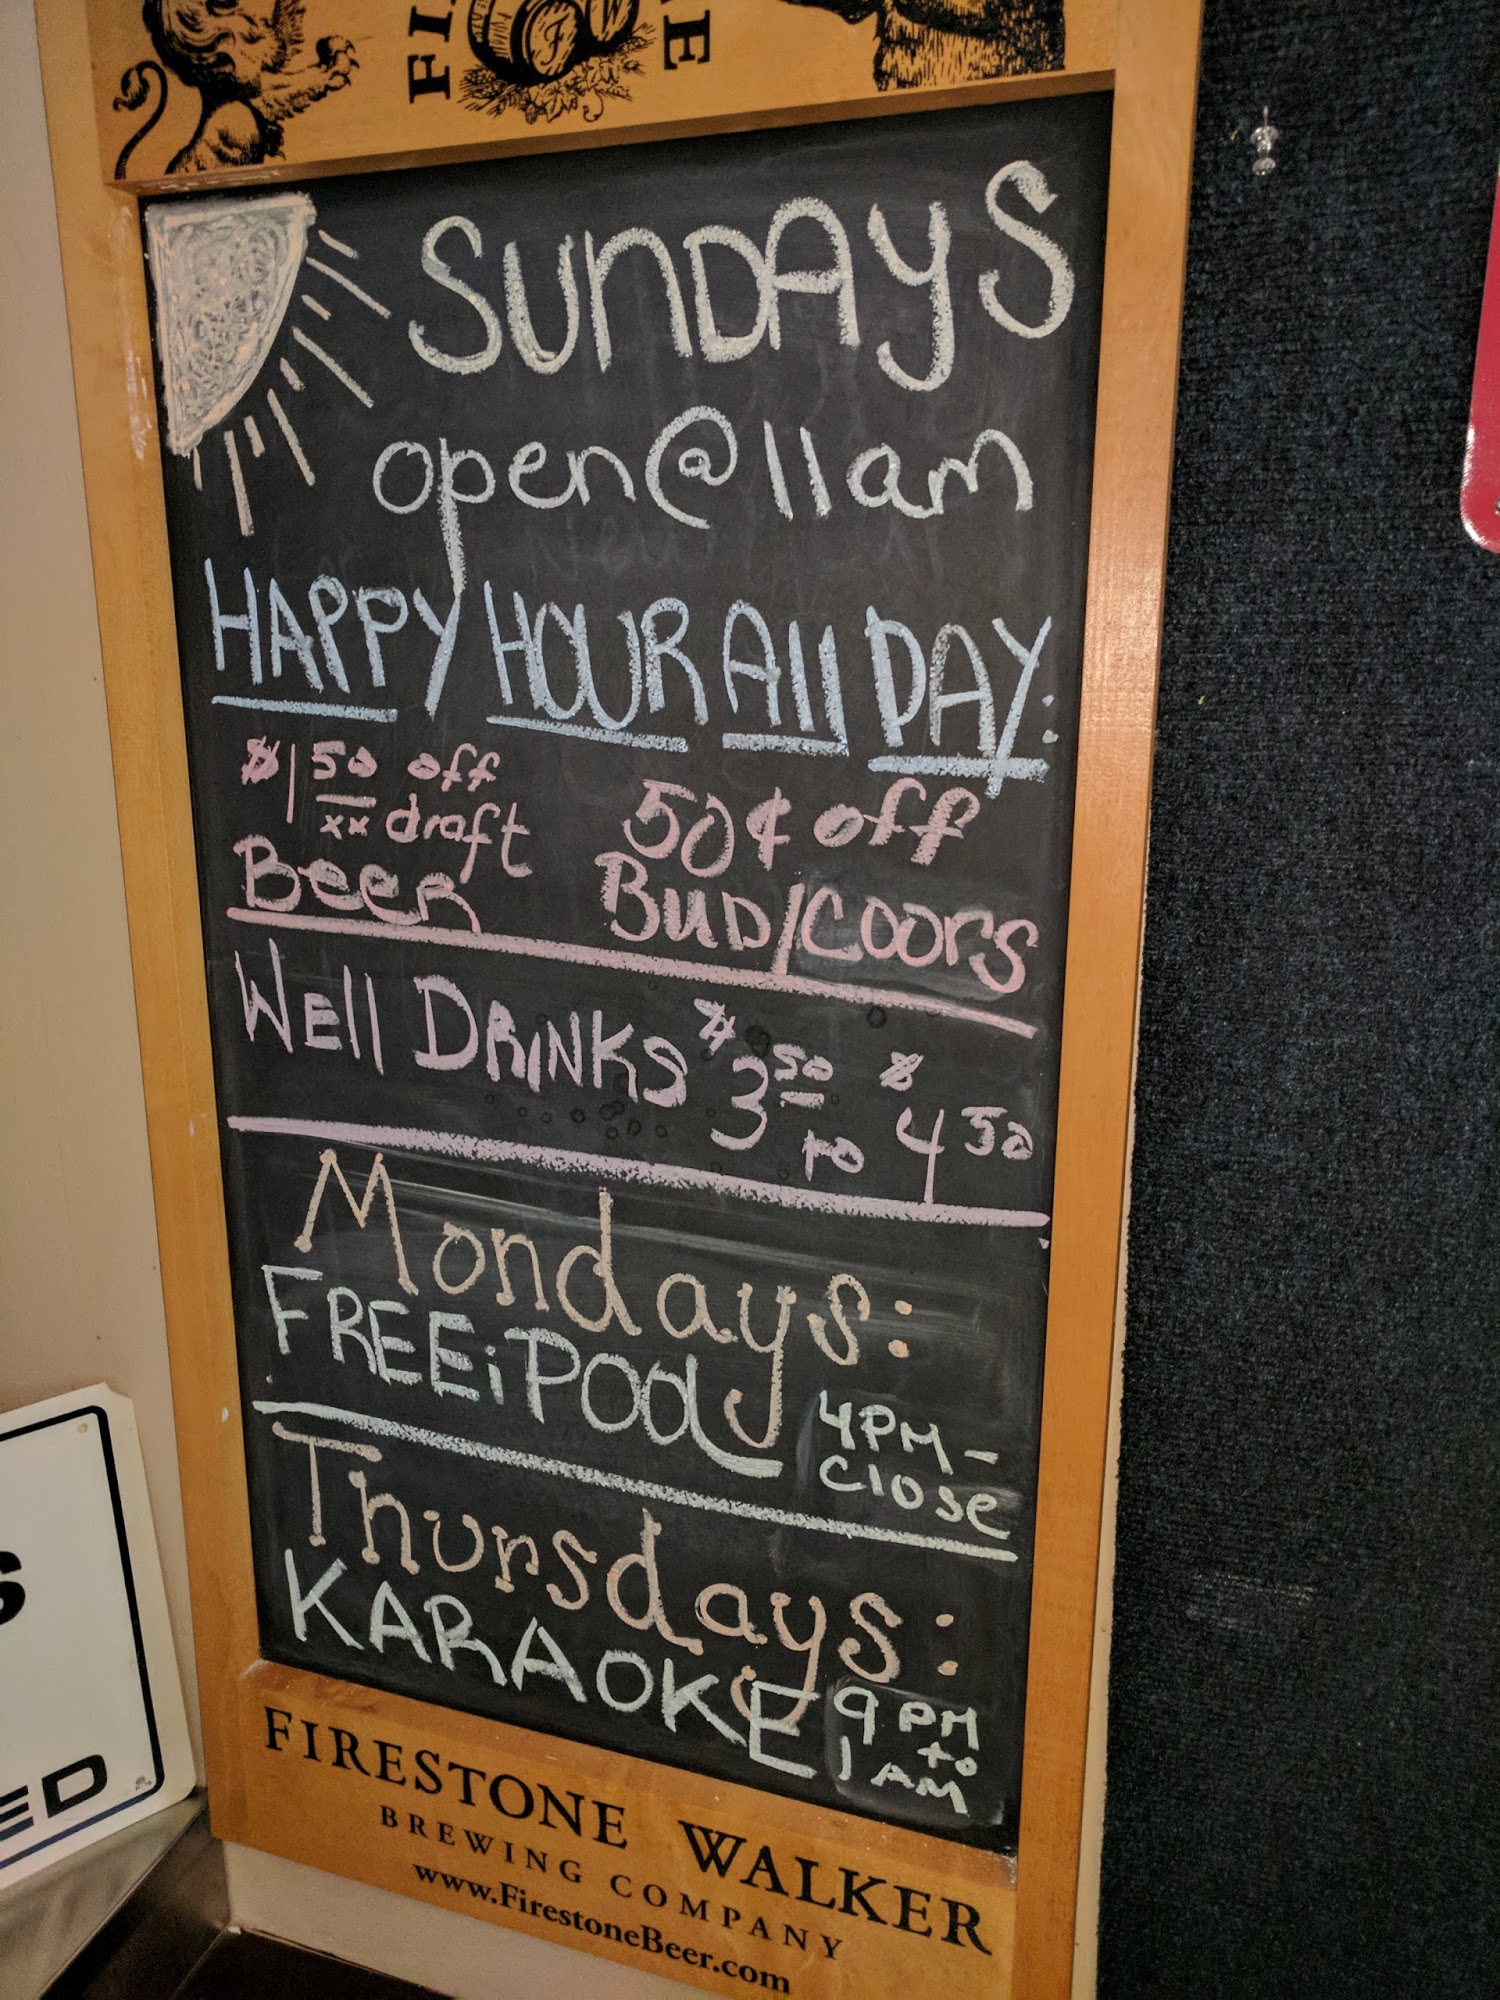 FI
NE
F W
SUnDAyS
open@11am
HAPPY HOUR All DAY:
$1 50 off
xx draft
Beer
50¢ off
BUD/COOrS
WEll DRiNKS $3 50 to $4 50
Mondays:
FREEiPOOL 4PM-
Close
Thursdays:
KARAOKE 9 PM
to
1 AM
FIRESTONE WALKER
BREWING COMPANY
www.FirestoneBeer.com
S
ED